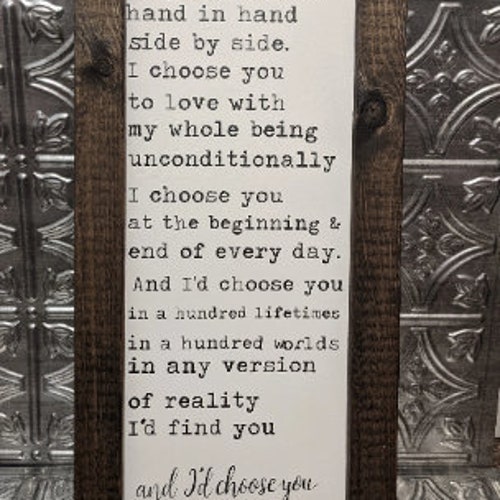 hand in hand
side by side.
I choose you
to love with
my whole being
unconditionally
I choose you
at the beginning &
end of every day.
And I'd choose you
in a hundred lifetimes
in a hundred worlds
in any version
of reality
I'd find you
and I'd choose you